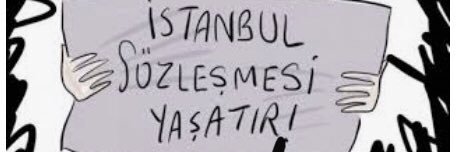 İSTANBUL
SÖZLEŞMESİ
YAŞATIR!